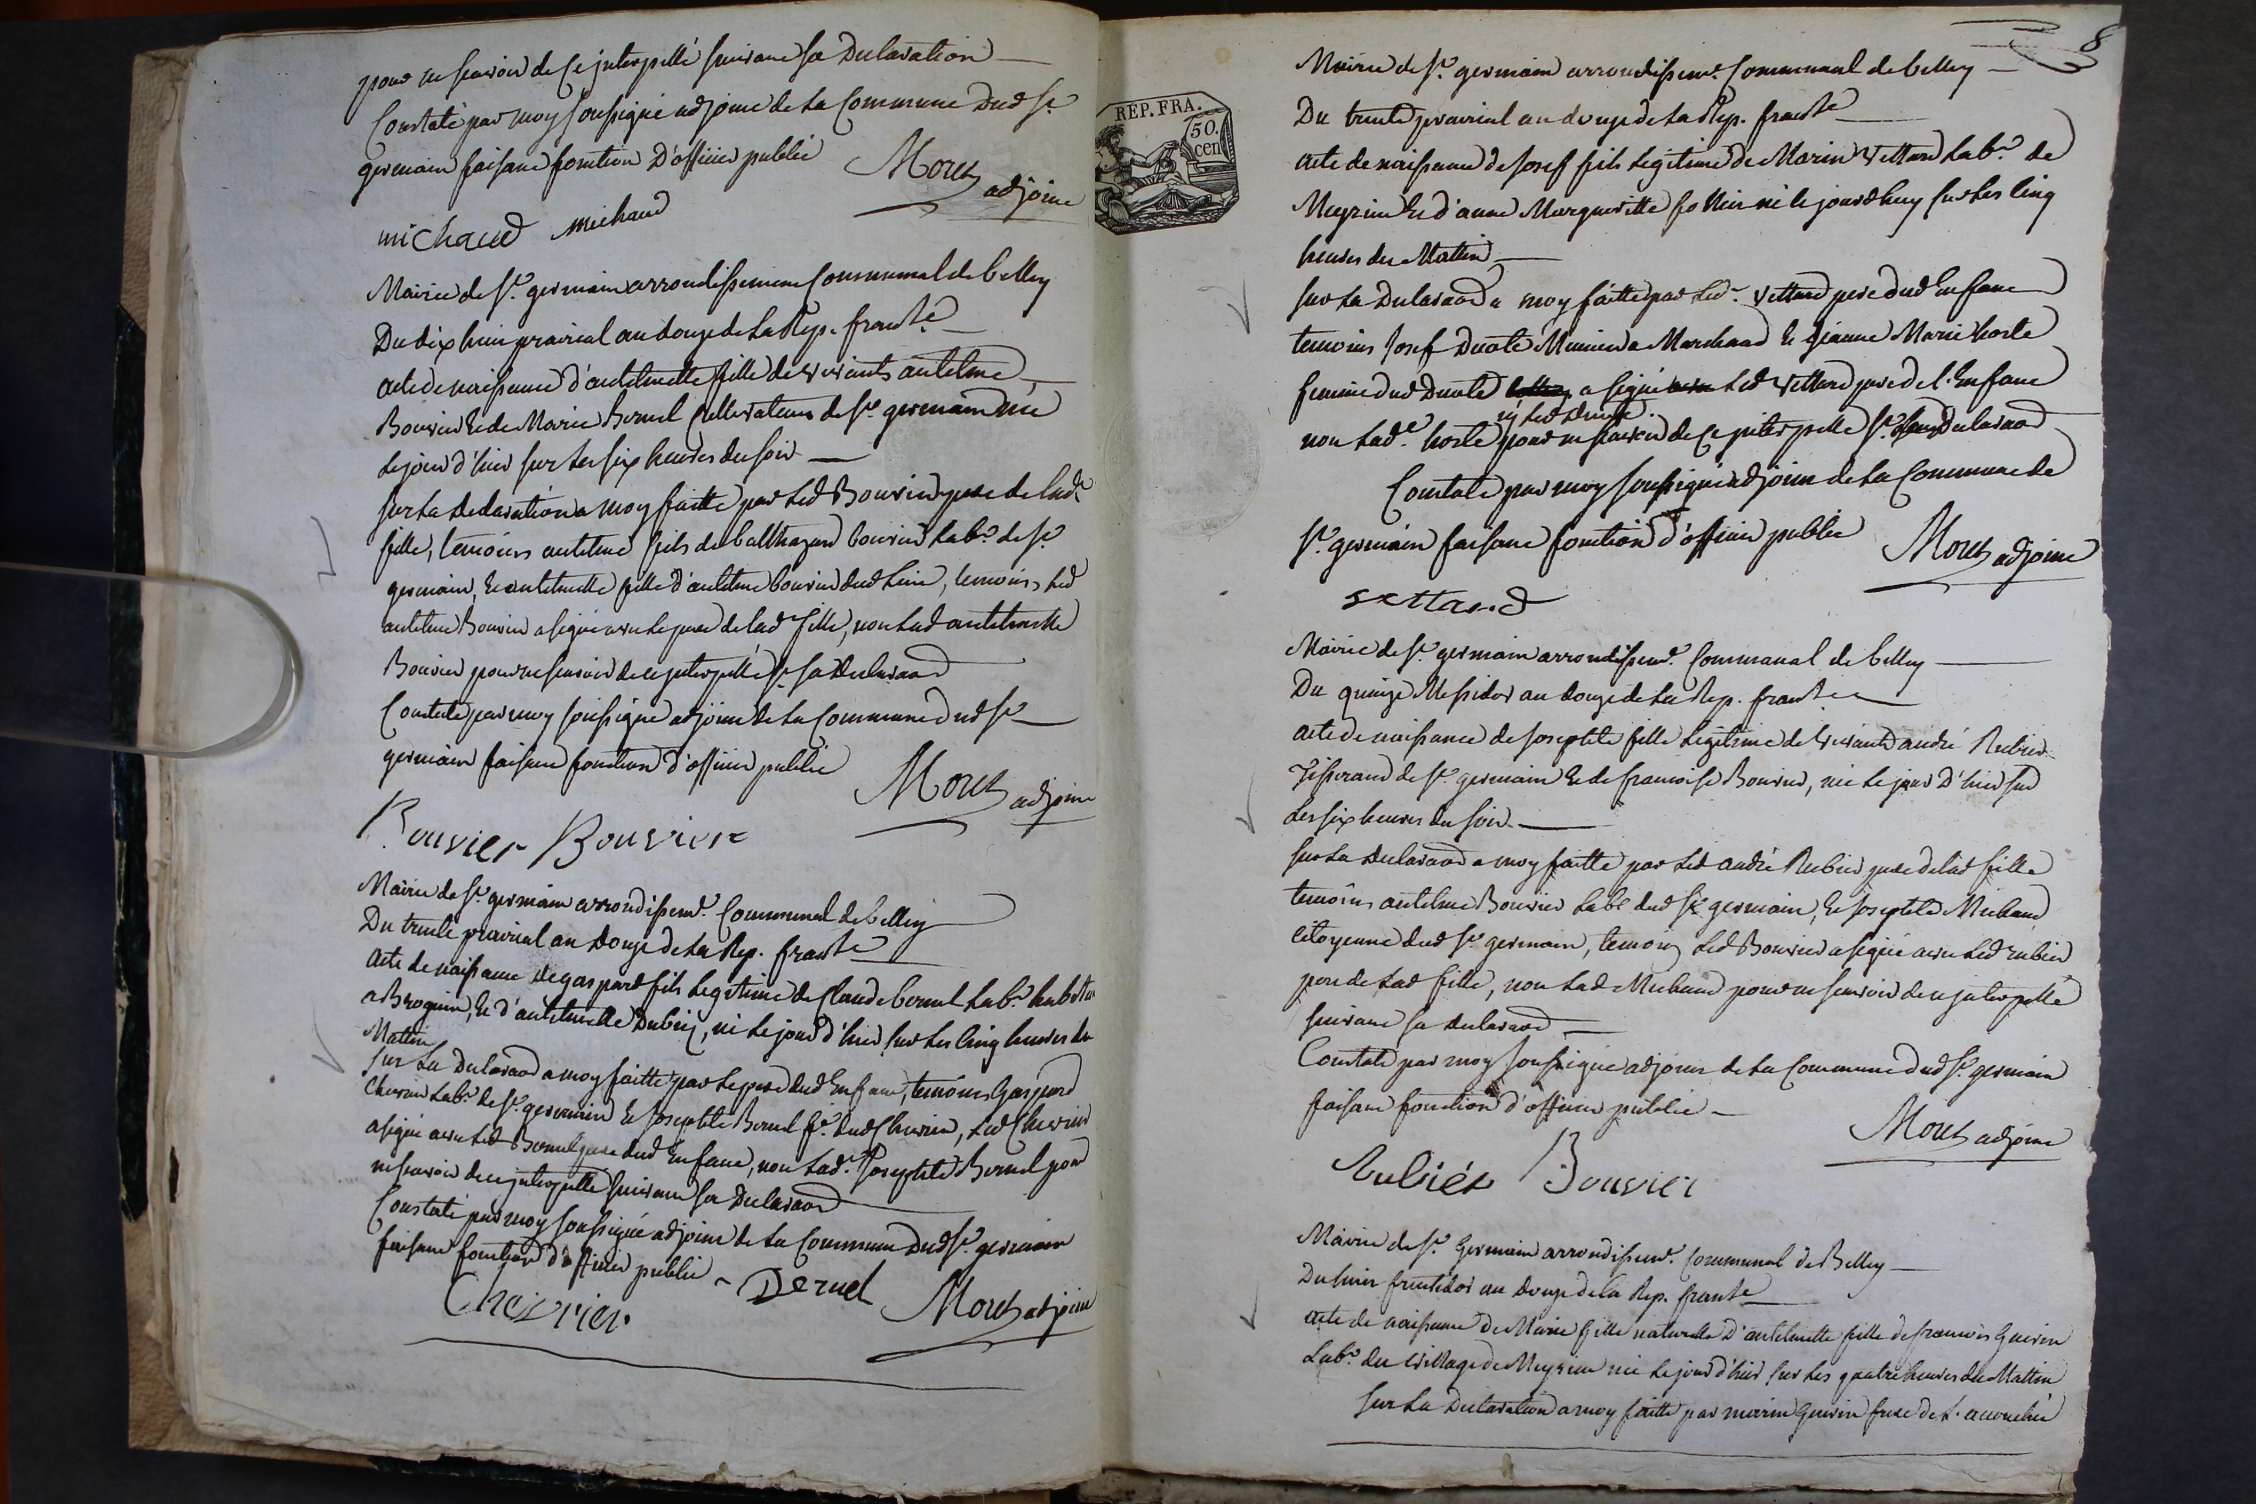 pour ne scavoir de ce interpellé suivant sa Declaration
Constaté par moy soussigné adjoint de la Commune Dud St.
germain faisant fonction D'officier public Moret adjoint
michaud michaud
Mairie de St. germain arrondissement Communal de belley
Du dix huit prairial an douze de la Rep. franse
acte de naissance d'antelmette fille de vivants antelme
Bouvier et de Marie Bornel cultivateurs de St. germain née
le jour d'hier sur les six heures du soir
sur la declaration a moy faitte par led Bouvier pere de lade
fille, temoins antelme fils de balthazard bouvier labr. de St.
germain, et antelmette fille d'antelme bouvier dud lieu, temoins, led
antelme Bouvier a signé avec le pere de lad fille, non lad antelmette
Bouvier pour ne scavoir de ce interpellé st. sa Declaraon
Constaté par moy soussigné adjoint de la Commune dud St.
germain faisant fonction d'officier public Moret adjoint
Bouvier Bouvier
Mairie de St. germain arrondissemt. Communal de belley
Du trente prairial an Douze de la Rep. franse
Acte de naissance de gaspard fils legitime de Claude bernel labr. habitan
a Brognin, et d'antelmette Dubin, né le jour d'hier sur les cinq heures du
Mattin
sur la Declaraon a moy faitte par le pere dud Enfant, temoins Gaspard
Chevrier labr. de St. germain et Josephte Bernel fe. dud Chevrier, led Chevrier
a signé avec led Bernel pere dud Enfant, non lade. Josephte Bernel pour
ne scavoir de ce interpellé suivant sa Declaraon
Constaté par moy soussigné adjoint de la Commune Dud St. germain
faisant fonction d'officier public Dernel Moret adjoint
Chevrier
8
REP. FRA.
50.
cen
Mairie de St. germain arrondissemt. Communal de belley
Du trente prairial an douze de la Rep. franse
acte de naissance de Josef fils legitime de Marin Vettard labr. de
Meyrieu et d'anne Margueritte né le jourdhuy sur les cinq
heures du Mattin
sur la Declaraon a moy faitte par led. Vettard pere dud Enfant
temoins Josef Marchand et Jeanne Marie horte
femme dud a signé led Vettard pere de l'Enfant
ny led
non lade. horte pour ne scavoir de ce interpellé st. leur Declaraon
Constaté par moy soussigné adjoint de la Commune de
St. germain faisant fonction d'officier public Moret adjoint
vettard
Mairie de St. germain arrondissemt. Communal de belley
Du quinze Messidor an douze de la Rep. franse
acte de naissance de Josephte fille legitime de vivants andré Rubier
Tisserand de St. germain et de francoise Bouvier, née le jour D'hier sur
les six heures du soir
sur la Declaraon a moy faitte par led andré Rubier pere de lad fille
temoins antelme Bouvier labr. dud St. germain, et Josephte Michaud
citoyenne dud St. germain, temoins led Bouvier a signé avec led rubier
pere de lad fille, non lade Michaud pour ne scavoir de ce interpellé
suivant sa declaraon
Constaté par moy soussigné adjoint de la Commune dud St. germain
faisant fonction d'officier public
Moret adjoint
Rubiér Bouvier
Mairie de St. Germain arrondissemt. Communal de Belley
Du fructidor an Douze de la Rep. franse
acte de naissance De Marie fille naturelle D'antelmette fille de francois Guerin
labr. du village de Meyrieu née le jour d'hier sur les quatre heures du Mattin
sur la Declaration a moy faitte par marin Guerin frere de l'accouchée